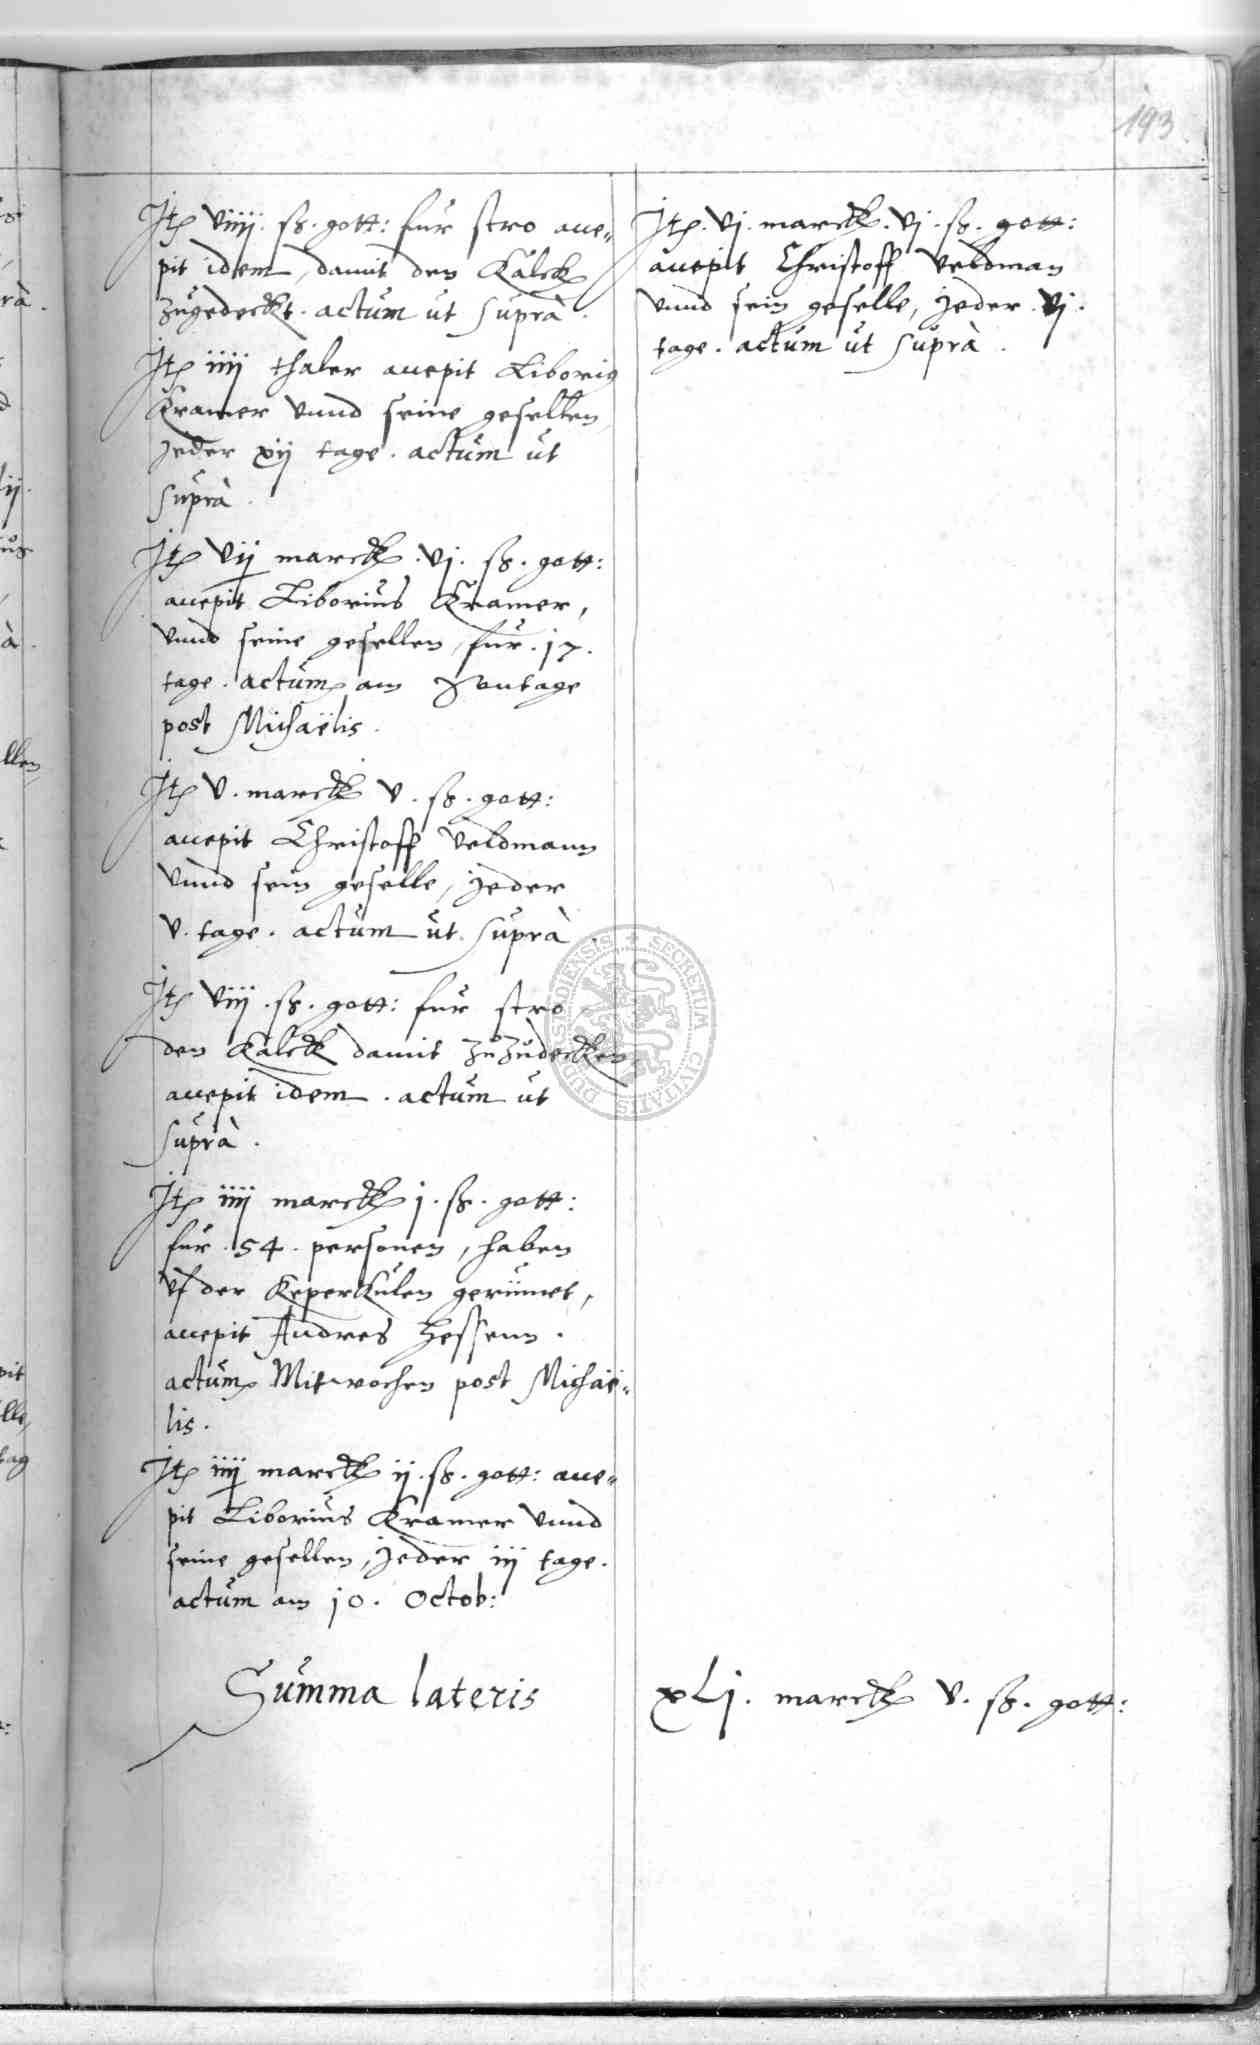 193
Jtem viiij. ß. gott: fur stro acce-
pit idem, damit den Kalck
zugedeckt. actum ut suprà.
Jtem iiij thaler accepit Liborius
Kramer vnnd seine gesellen,
jeder xij tage. actum ut
suprà.
Jtem vij marck. vj. ß. gott:
accepit Liborius Kramer,
vnnd seine gesellen, fur. 17.
tage. actum am Montage
post Michaëlis.
Jtem v. marck v. ß. gott:
accepit Christoff Veldmann
vnnd sein geselle, jeder
v. tage. actum ut suprà.
Jtem viij. ß. gott: fur stro
den Kalck damit zuzudecken,
accepit idem. actum ut
suprà.
Jtem iiij marck j. ß. gott:
fur. 54. personen, haben
vf der Keperkulen gerümet,
accepit Andres Hessenn.
actum Mitwochen post Michaë-
lis.
Jtem iiij marck ij. ß. gott: acce-
pit Liborius Kramer vnnd
seine gesellen, jeder iij tage.
actum am 10. Octob:
Jtem. vj. marck. vj. ß. gott:
accepit Christoff Veldman
vnnd sein geselle, jeder. vj.
tage. actum ut suprà.
Summa lateris xLj. marck v. ß. gott:
SECRETUM CIVITATIS DUDERSTADIENSIS